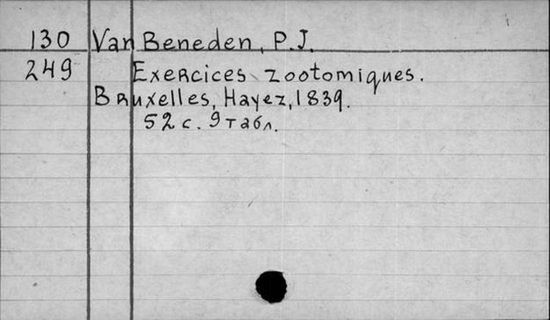 130 Van Beneden, P.J.
249 Exercices zootomiques.
Bruxelles, Hayez, 1839.
52 с. 9 табл.